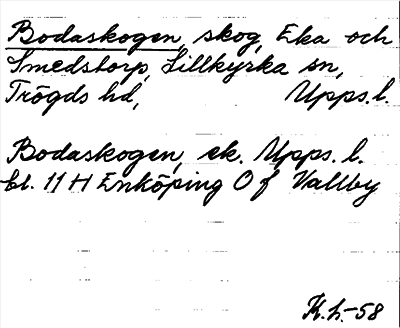 Bodaskogen, skog, Eka och
Smedstorp, Lillkyrka sn,
Trögds hd, Upps. l.
Bodaskogen, ek. Upps. l.
bl. 11 H Enköping O f Vallby
K.L.-58